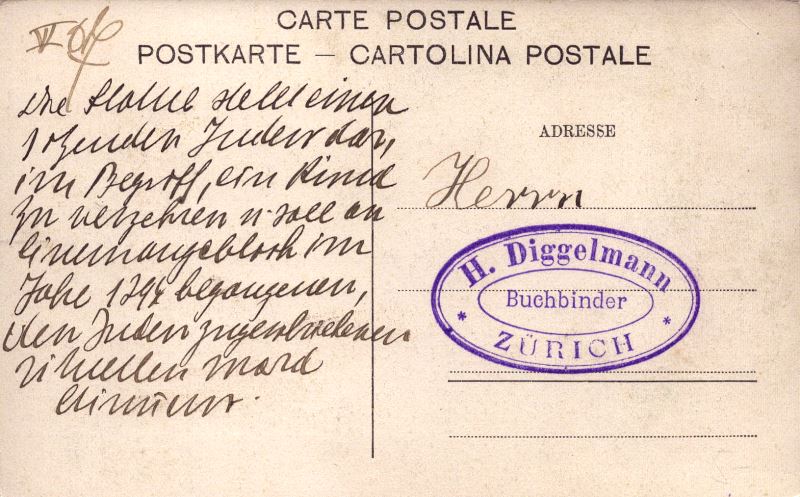 CARTE POSTALE
POSTKARTE — CARTOLINA POSTALE
ADRESSE
Die Statue stellt einen
sitzenden Juden dar,
im Begriff, ein Kind
zu verzehren u. soll an
einen angeblich im
Jahre 1294 begangenen,
den Juden zugeschriebenen
rituellen Mord
erinnern.
Herrn
H. Diggelmann
Buchbinder
* ZÜRICH *